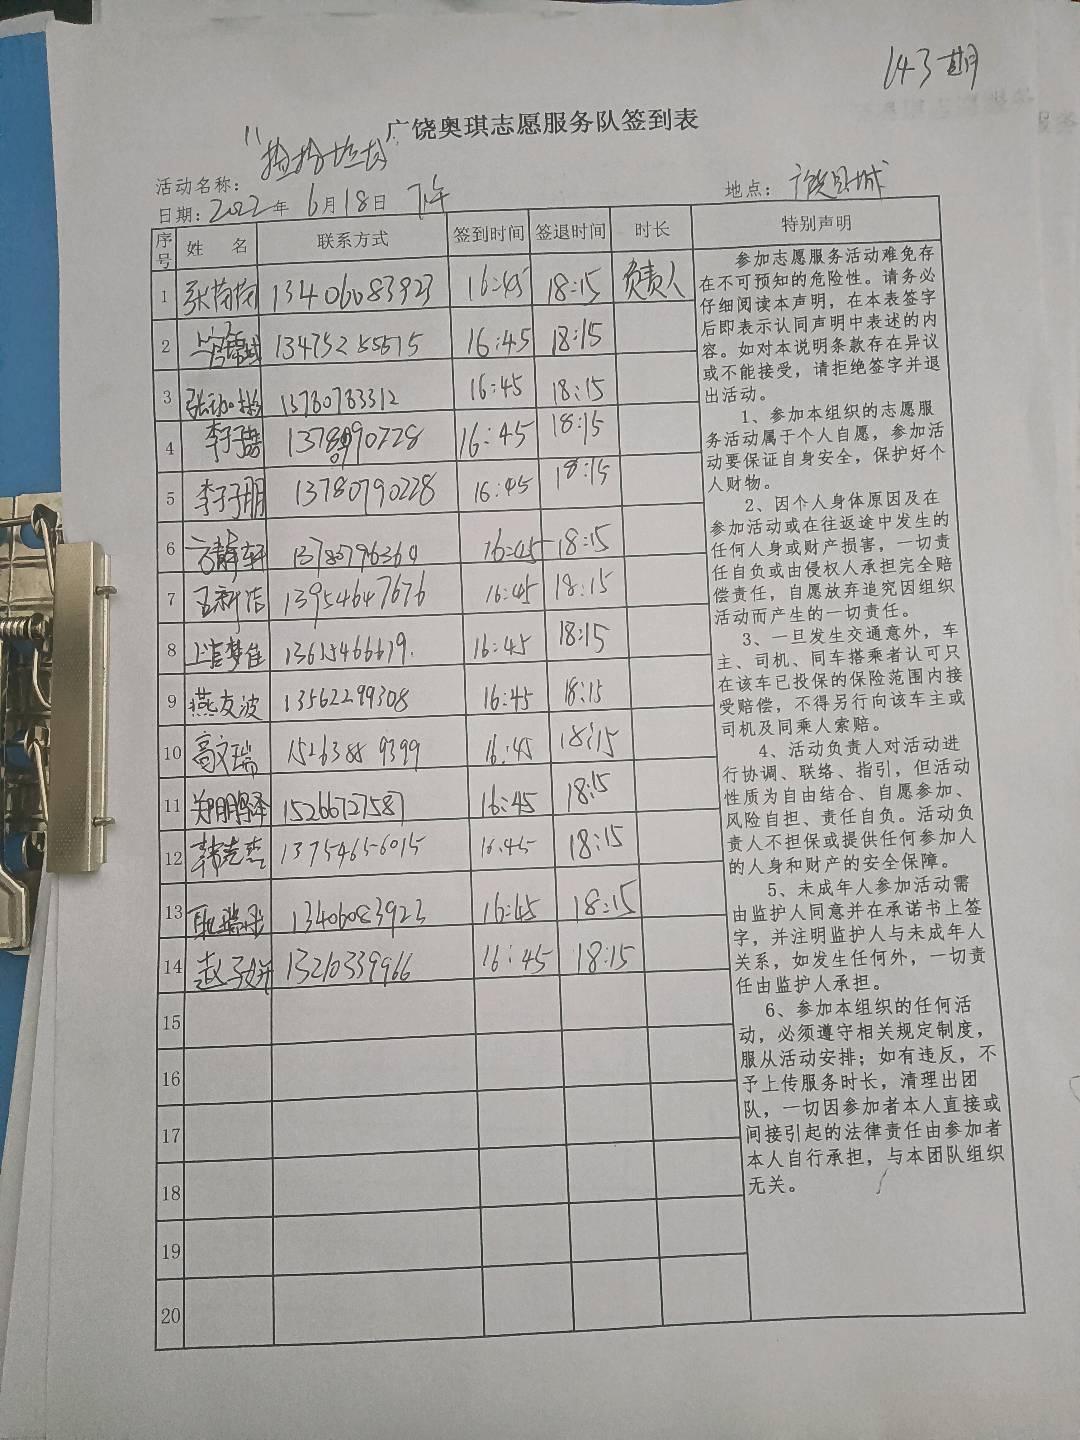 143期
广饶奥琪志愿服务队签到表
活动名称：“捡拾垃圾”
地点：广饶县城
日期：2022年6月18日 下午
序号 姓 名 联系方式 签到时间 签退时间 时长 特别声明
1 张苘苘 13406083923 16:45 18:15 负责人
2 13475255515 16:45 18:15
3 13780783312 16:45 18:15
4 李子 16:45 18:15
5 李子朋 13780790228 16:45 18:15
6 静轩 16:45 18:15
7 王新洁 13954647676 16:45 18:15
8 上官梦佳 13615466619. 16:45 18:15
9 燕友波 13562299308 16:45 18:15
10 高文瑞 15263889399 16:45 18:15
11 郑鹏泽 15266727587 16:45 18:15
12 韩志杰 13754656015 16:45 18:15
13 耿瑞 13406083923 16:45 18:15
14 赵子妍 13210339966 16:45 18:15
15
16
17
18
19
20
参加志愿服务活动难免存
在不可预知的危险性。请务必
仔细阅读本声明，在本表签字
后即表示认同声明中表述的内
容。如对本说明条款存在异议
或不能接受，请拒绝签字并退
出活动。
1、参加本组织的志愿服
务活动属于个人自愿，参加活
动要保证自身安全，保护好个
人财物。
2、因个人身体原因及在
参加活动或在往返途中发生的
任何人身或财产损害，一切责
任自负或由侵权人承担完全赔
偿责任，自愿放弃追究因组织
活动而产生的一切责任。
3、一旦发生交通意外，车
主、司机、同车搭乘者认可只
在该车已投保的保险范围内接
受赔偿，不得另行向该车主或
司机及同乘人索赔。
4、活动负责人对活动进
行协调、联络、指引，但活动
性质为自由结合、自愿参加、
风险自担、责任自负。活动负
责人不担保或提供任何参加人
的人身和财产的安全保障。
5、未成年人参加活动需
由监护人同意并在承诺书上签
字，并注明监护人与未成年人
关系，如发生任何外，一切责
任由监护人承担。
6、参加本组织的任何活
动，必须遵守相关规定制度，
服从活动安排；如有违反，不
予上传服务时长，清理出团
队，一切因参加者本人直接或
间接引起的法律责任由参加者
本人自行承担，与本团队组织
无关。